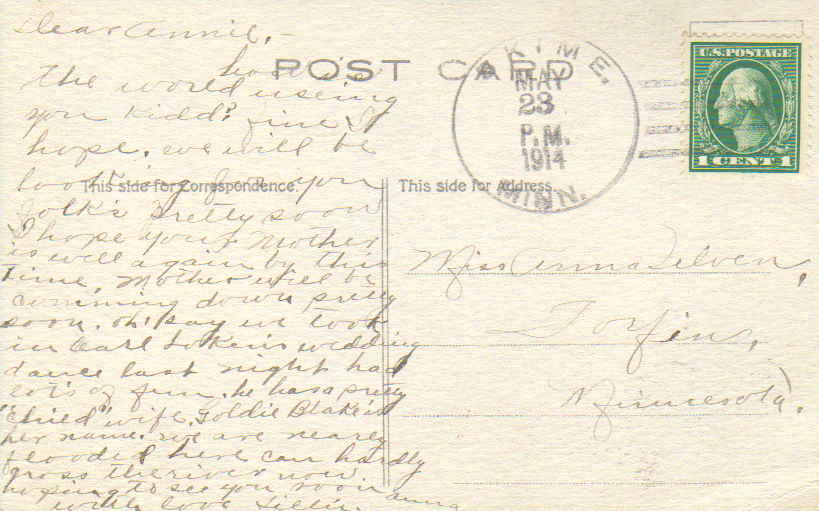 Dear Annie,-
how is
the world useing
you Kidd? fine I
hope. we will be
looking for you
folks pretty soon
I hope your Mother
is well again by this
time. Mother will be
cumming down pretty
soon. oh! say we took
in Earl wedding
dance last night had
lots of fun. he has a pretty
"child" wife. Goldie Blake is
her name. we are nearly
flooded here can hardly
cross the river now
hoping to see you soon
with love
Anna
POST CARD
This side for Correspondence.
This side for Address.
MAY
23
P.M.
1914
MINN.
U.S. POSTAGE
1 CENT 1
Miss Anna Tilven,
Torfin,
Minnesota.